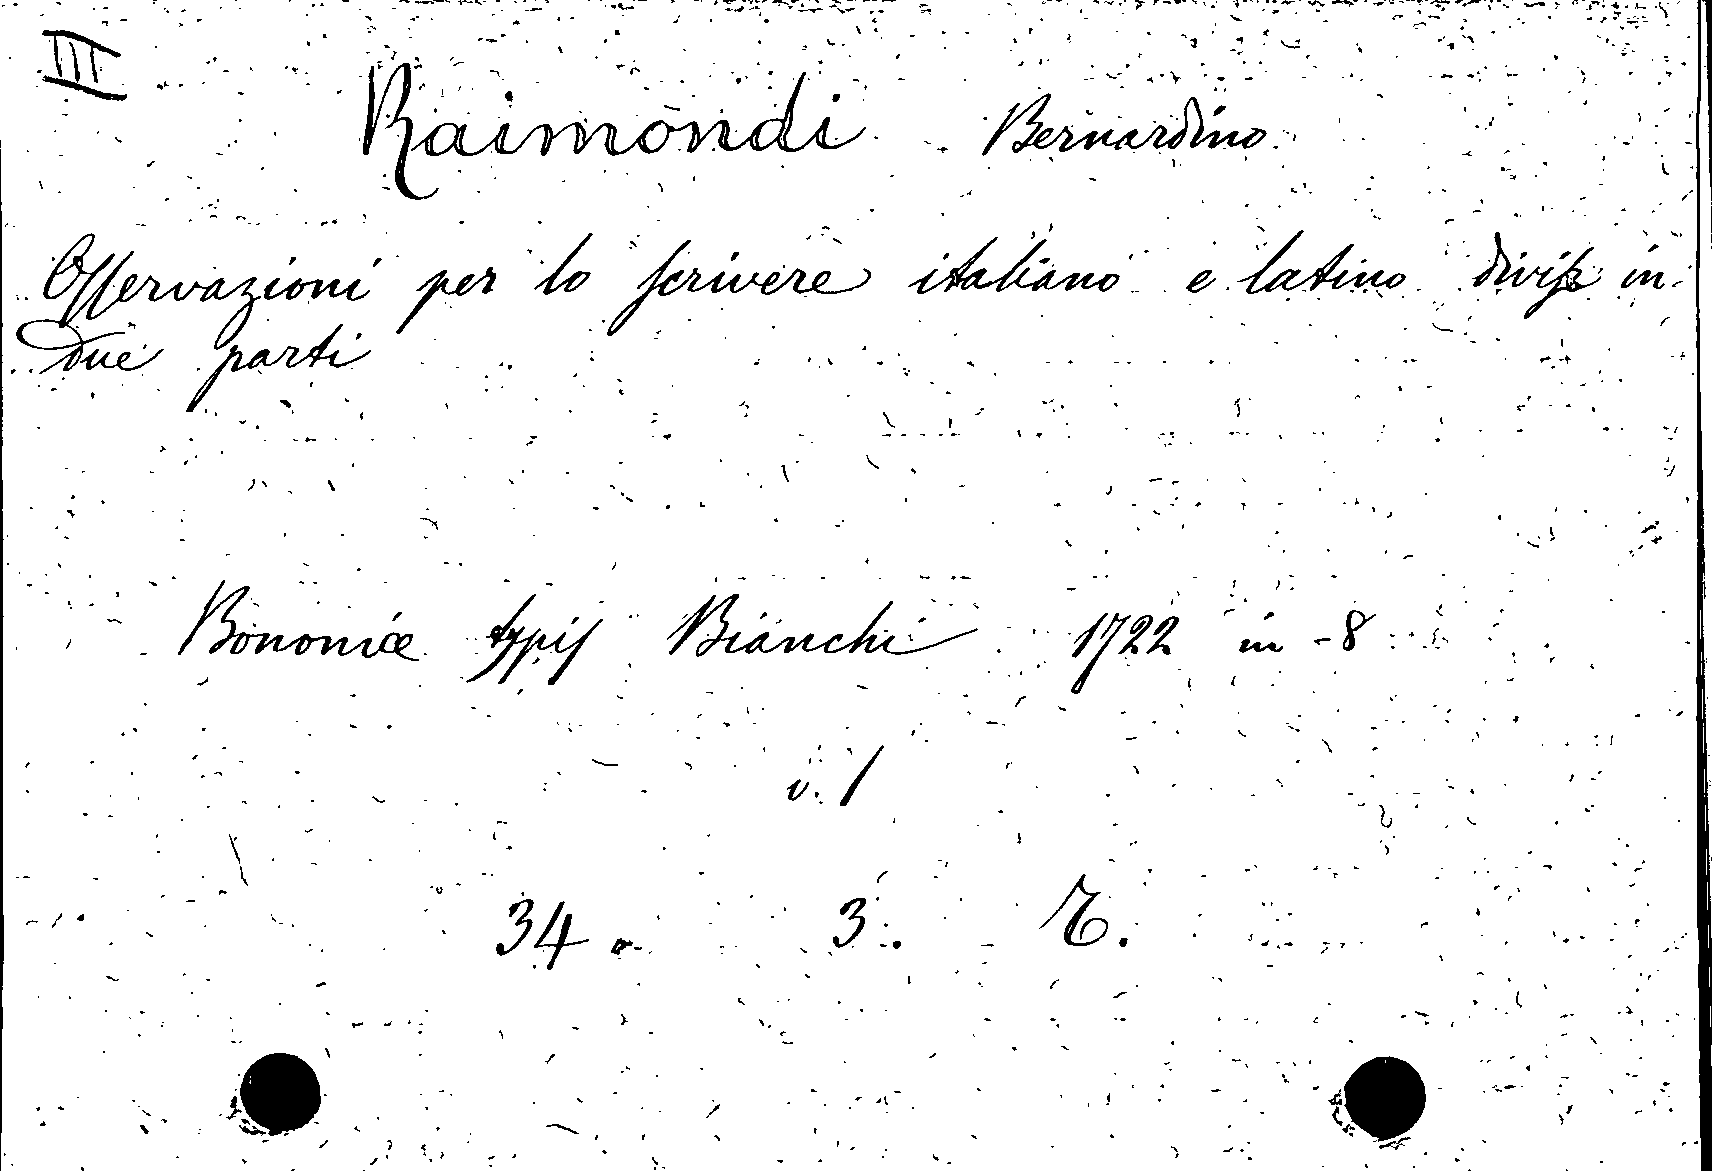 III
Raimondi Bernardino
Osservazioni per lo scrivere italiano e latino divise in
due parti
Bononiæ typis Bianchi 1722 in-8
v. 1
34. 3.